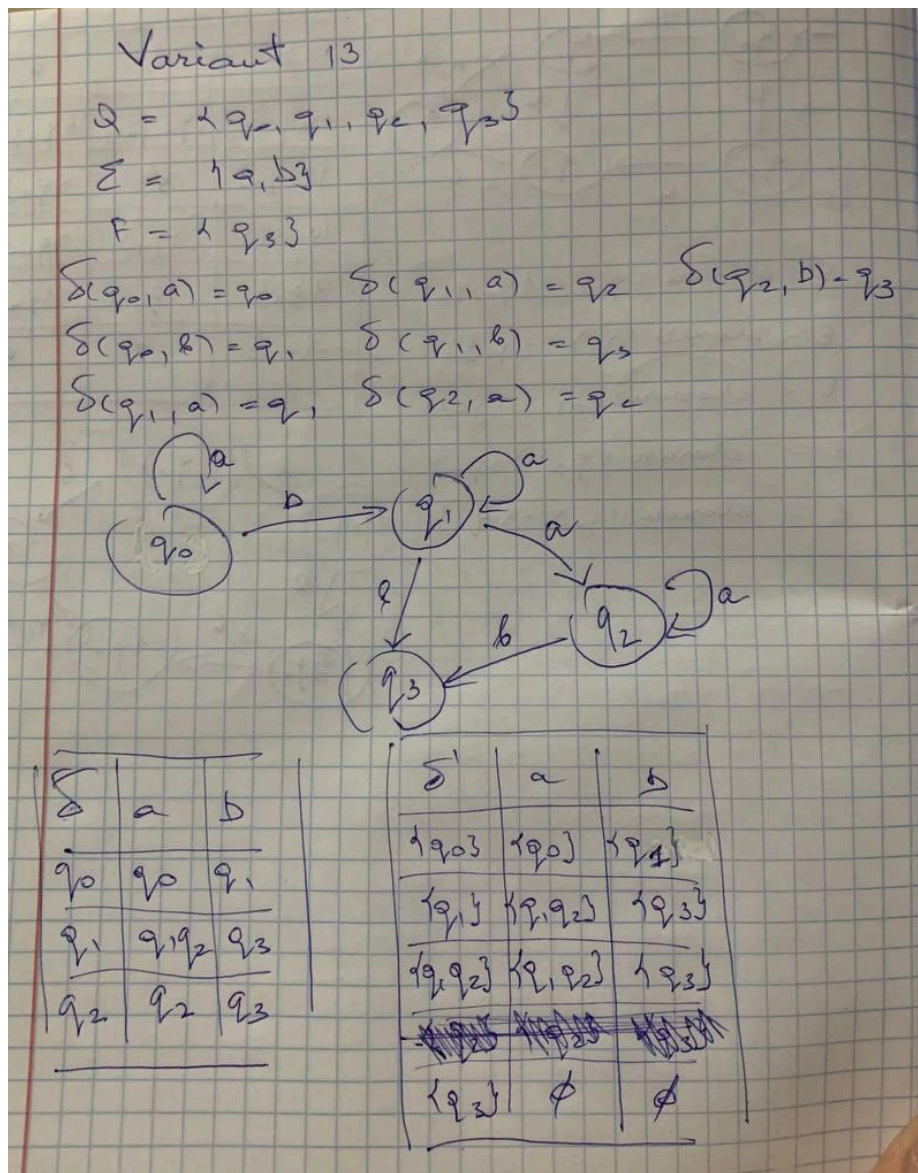 Variant 13
Q = {q0, q1, q2, q3}
Σ = {a, b}
F = {q3}
δ(q0, a) = q0 δ(q1, a) = q2 δ(q2, b) = q3
δ(q0, b) = q1 δ(q1, b) = q3
δ(q1, a) = q1 δ(q2, a) = q2
a
a
q0 b q1
a
a
q2
b
q3
δ a b
q0 q0 q1
q1 q1q2 q3
q2 q2 q3
δ' a b
{q0} {q0} {q1}
{q1} {q1q2} {q3}
{q1q2} {q1q2} {q3}
{q3} ∅ ∅